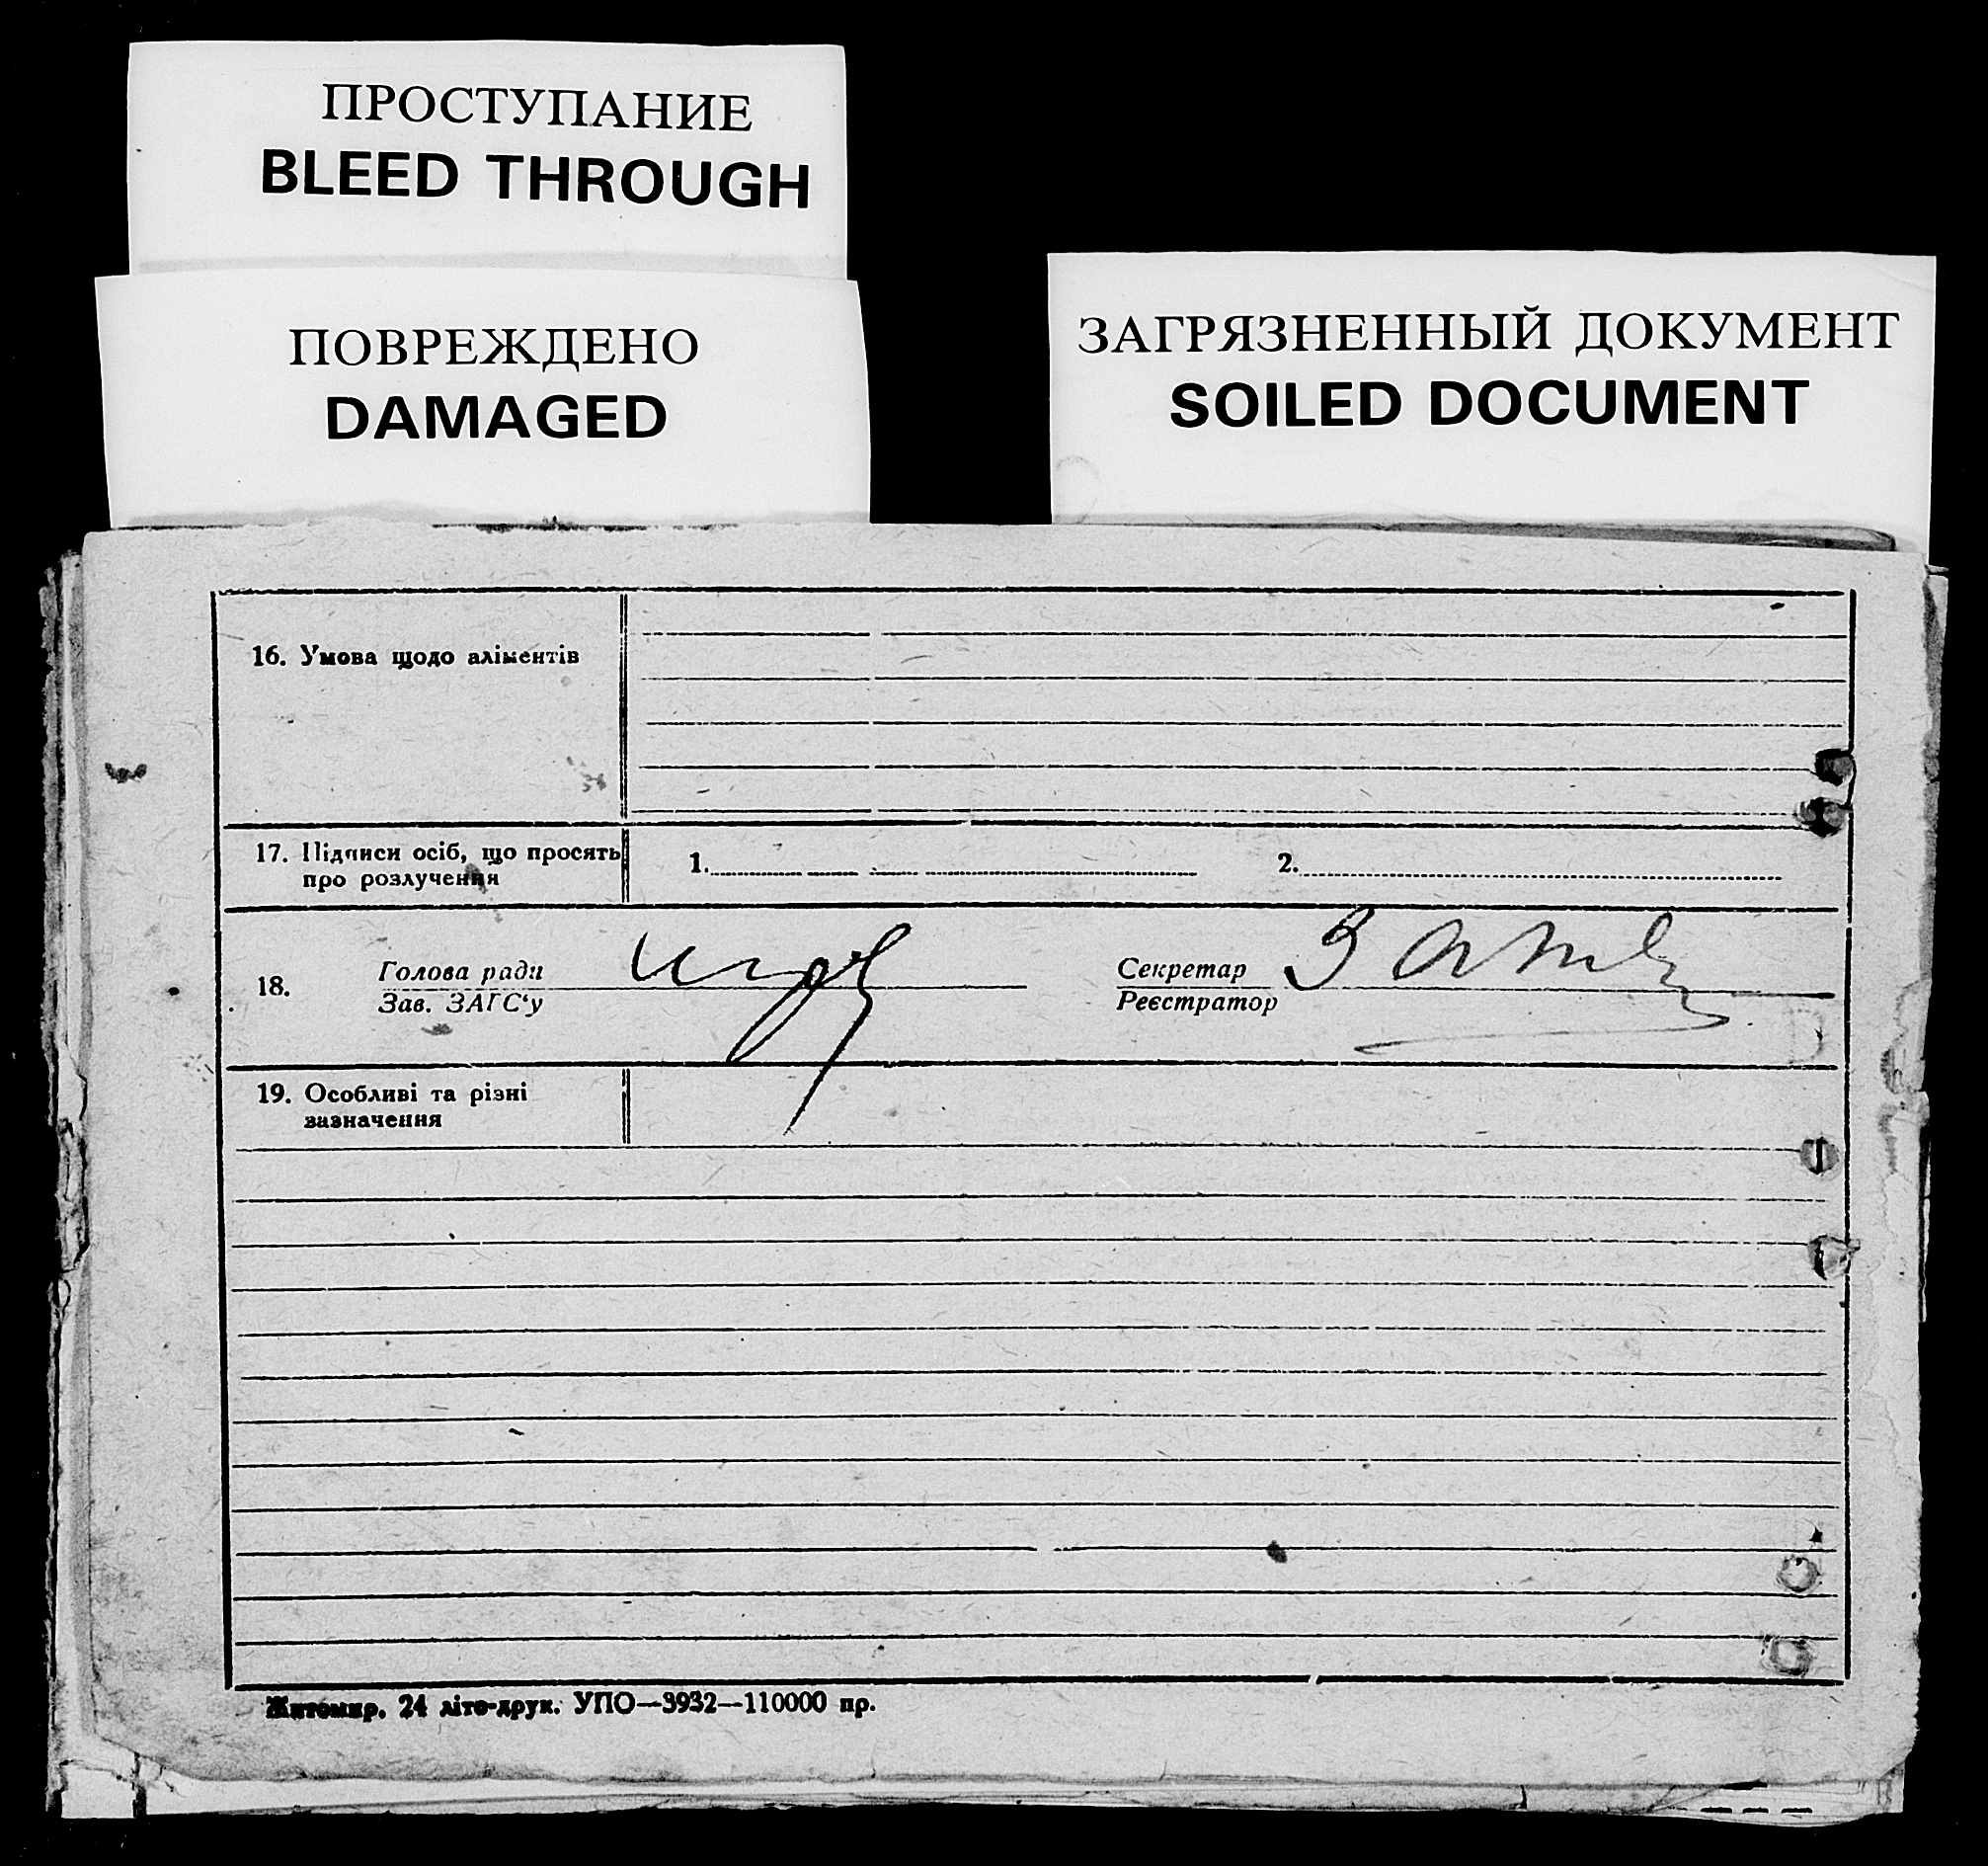 ПРОСТУПАНИЕ
BLEED THROUGH
ПОВРЕЖДЕНО
DAMAGED
ЗАГРЯЗНЕННЫЙ ДОКУМЕНТ
SOILED DOCUMENT
16. Умова щодо аліментів
17. Підписи осіб, що просять
про розлучення
1.
2.
18.
Голова ради
Зав. ЗАГС‘у
Секретар
Реєстратор
19. Особливі та різні
зазначення
Житомир. 24 літо-друк. УПО—3932—110000 пр.